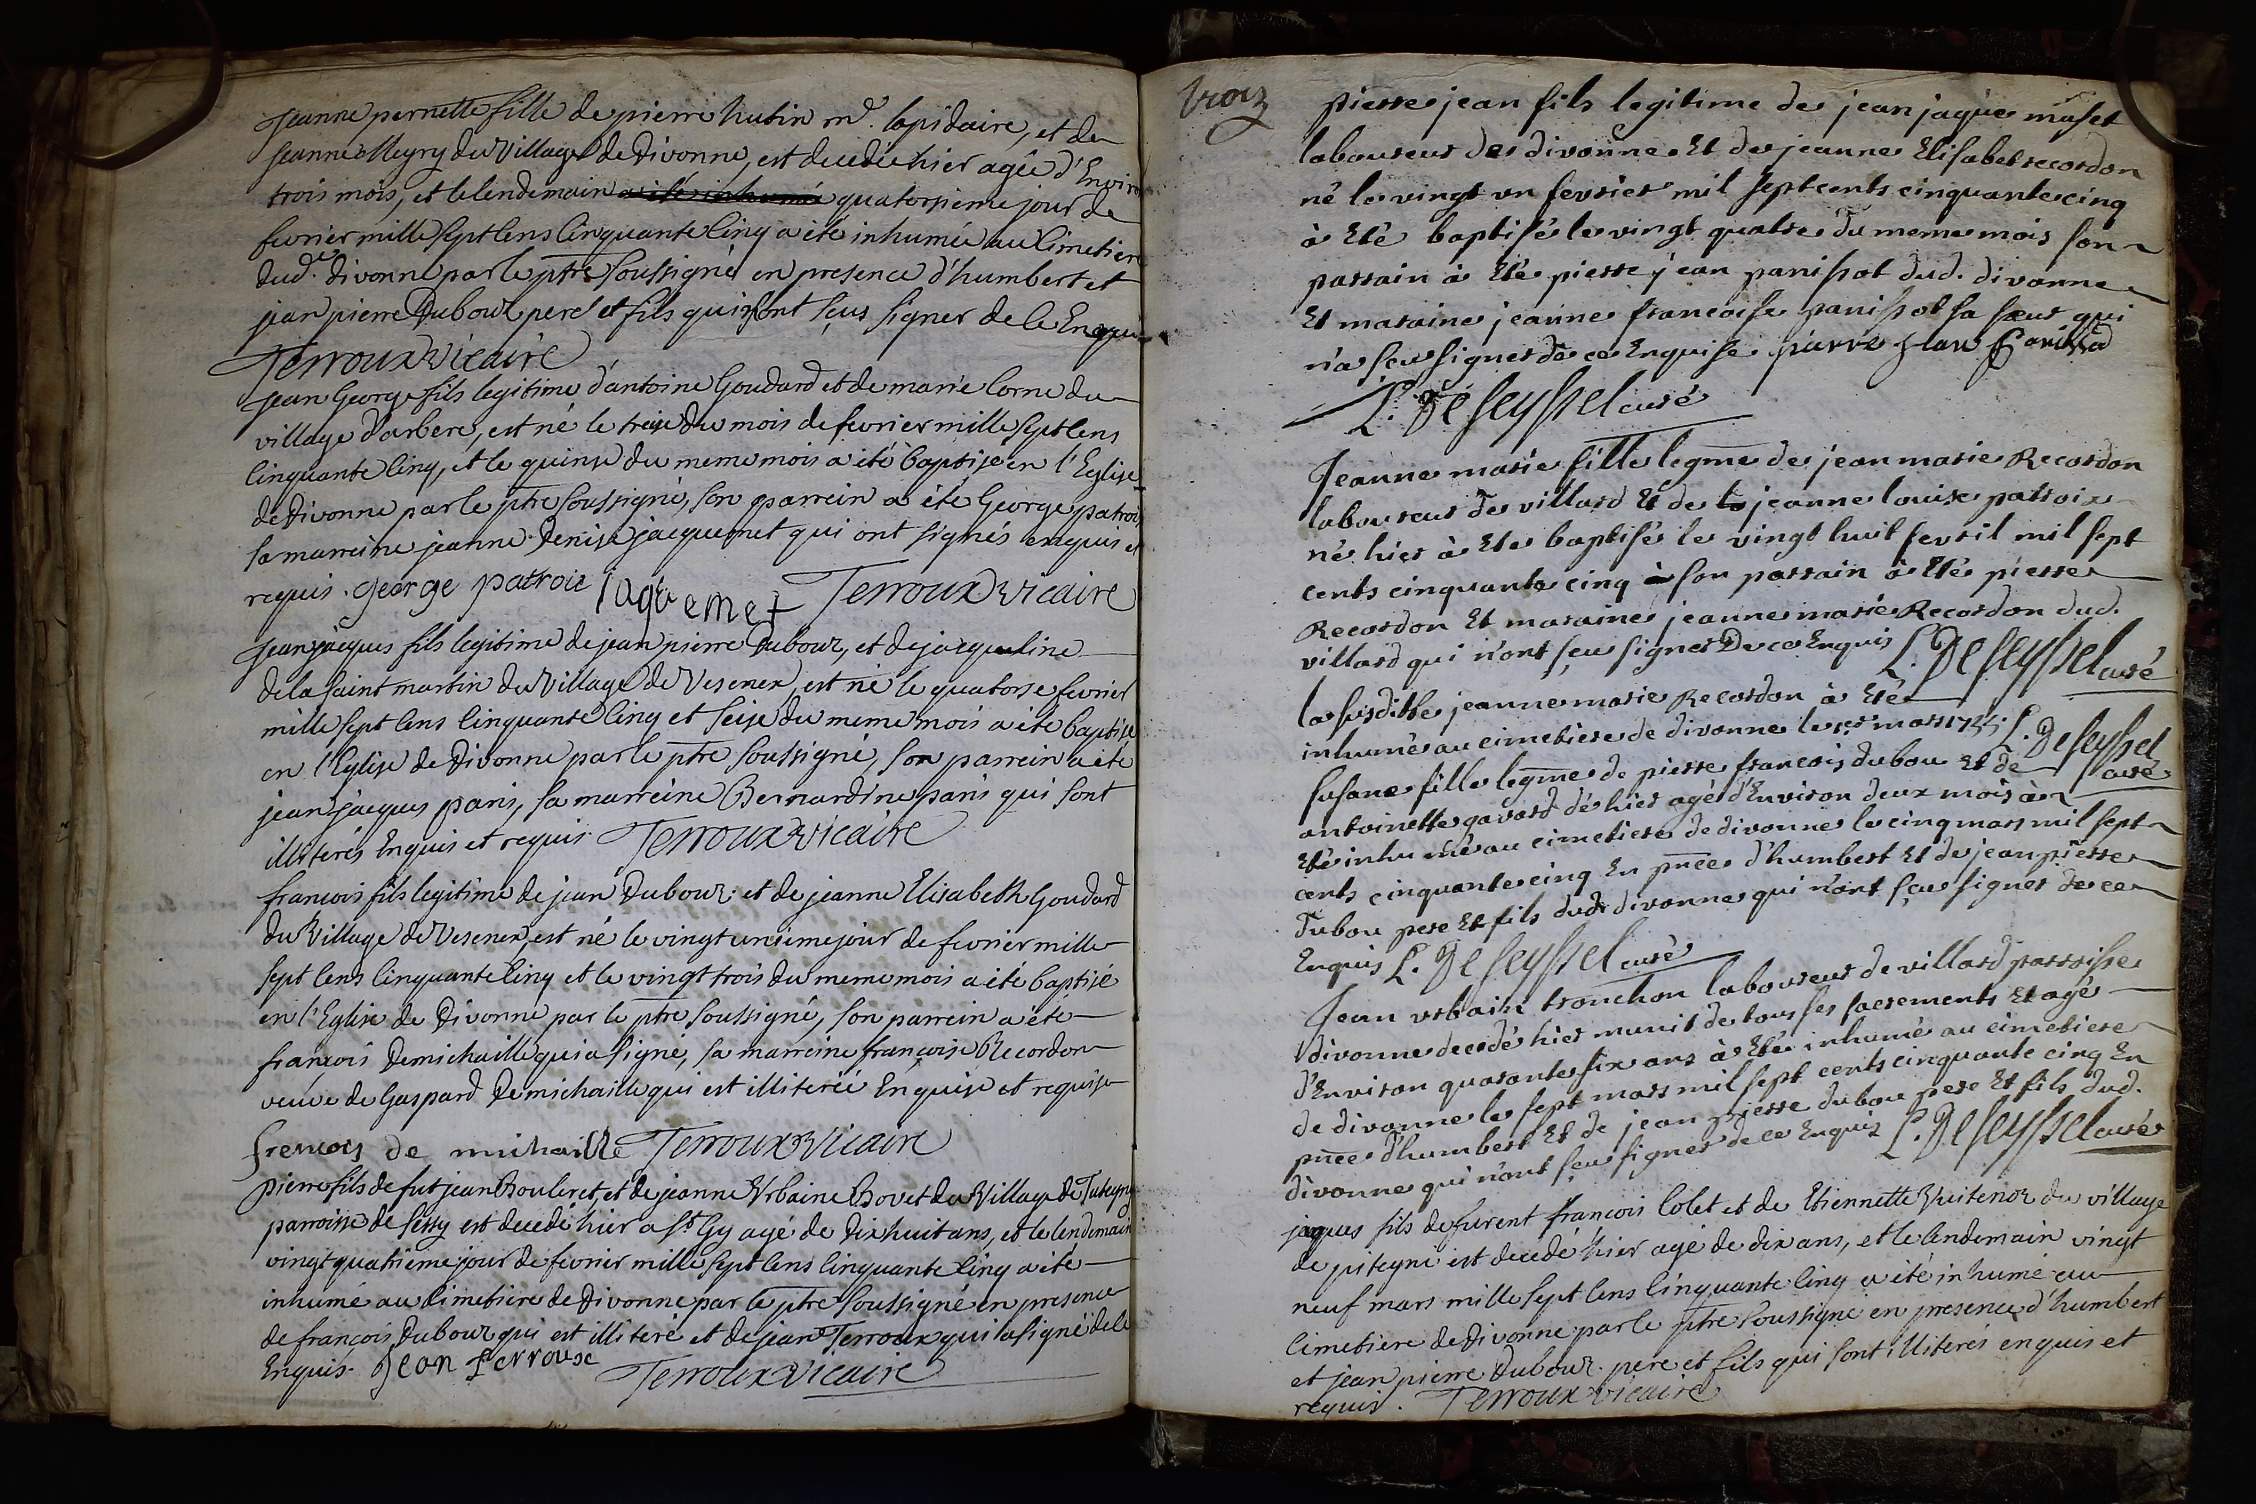 Jeanne pernette fille de pierre hutin m.d lapidaire, et de
jeanne Megry du Village de Divonne, est decedée hier agée d'Environ
trois mois, et le lendemain a été inhumée quatorsieme jour de
fevrier mille sept Cens Cinquante Cinq a été inhumée au Cimetiere
dud.t Divonne par le ptre soussigné en presence d'humbert et
jean pierre Dubour pere et fils qui n'ont sçus signer de ce Enquis
Terroux Vicaire
Jean George fils legitime d'antoine Goudard et de marie Corne du
village d'arbere, est né le treise du mois de fevrier mille sept Cens
Cinquante Cinq, et le quinse du meme mois a été baptise en l'Eglise
de Divonne par le ptre soussigné, son parrein a été George patroix
sa marreine jeanne Denise jacquemet qui ont signés enquis et
requis. george patroie jaquemet Terroux Vicaire
Jean jacques fils legitime de jean pierre Dubour, et de jacqueline
de la saint martin du Village de Vesenex, est né le quatorse fevrier
mille sept Cens Cinquante Cinq et seise du meme mois a été baptisé
en l'Eglise de Divonne par le ptre soussigné, son parrein a été
jean jacques paris, sa marreine Bernardine paris qui sont
illiterés Enquis et requis. Terroux Vicaire
francois fils legitime de jean Dubour et de jeanne Elisabeth Goudard
du Village de Vesenex, est né le vingt unsieme jour de fevrier mille
sept Cens Cinquante Cinq et le vingt trois du meme mois a été baptisé
en l'Eglise de Divonne par le ptre soussigné, son parrein a été
francois Demichaille qui a signé, sa marreine françoise Recordon
veuve de Gaspard Demichaille qui est illiterée Enquise et requise
frencois de michaille Terroux Vicaire
pierre fils de fut jean Bouleret, et de jeanne Urbaine Bovet du Village de Tutegny
parroisse de Cessy est decedé hier a St Gy agé de Dix huit ans, et le lendemain
vingt quatrieme jour de fevrier mille sept Cens Cinquante Cinq a été
inhumé au Cimetiere de Divonne par le ptre soussigné en presence
de francois Dubour qui est illiteré et de jean Terroux qui a signé de ce
Enquis. Jean Terroux Terroux Vicaire
troiz
pierre jean fils legitime de jean jaque maset
laboureur de divonne Et de jeanne Elisabet recordon
né le vingt un fevrier mil sept cents cinquante cinq
à Eté baptisé le vingt quatre du meme mois son
parrain à Eté pierre jean panissot dud. divonne
Et maraine jeanne francoise panissot sa sœur qui
n'a sçu signer de ce Enquise pierre jean
L. De seyssel curé
Jeanne marie fille legme de jean marie Recordon
laboureur de villard Et de jeanne louise patroix
né hier à Eté baptisé le vingt huit fevril mil sept
cents cinquante cinq son parrain à Eté pierre
Recordon Et maraine jeanne marie Recordon dud.
villard qui n'ont sçu signer De ce Enquis L. De seyssel curé
la susditte jeanne marie Recordon à Eté
inhumé au cimetiere de divonne le 1er mars 1755 L. De seyssel curé
susane fille legme de pierre francois dubou Et de
antoinette gavard dé hier agé d'Environ deux mois à
Eté inhumé au cimetiere de divonne le cinq mars mil sept
cents cinquante cinq En pnce d'humbert Et de jean pierre
Dubou pere Et fils dud. divonne qui n'ont sçu signer de ce
Enquis L. De seyssel curé
Jean urbain tronchon laboureur de villard parroisse
divonne decedé hier munit de tous ses sacrements Et agé
d'Environ quarante six ans à Eté inhumé au cimetiere
de divonne le sept mars mil sept cents cinquante cinq En
pnce d'humbert Et de jean pierre dubou pere Et fils dud.
divonne qui n'ont sçu signer de ce Enquis L. De seyssel curé
jaques fils de furent francois Colet et de Etiennette Vuitenoz du village
de pitegni est decedé hier agé de dix ans, et le lendemain vingt
neuf mars mille sept Cens Cinquante Cinq a été inhumé au
Cimetiere de Divonne par le ptre soussigné en presence d'humbert
et jean pierre Dubour pere et fils qui sont illiterés enquis et
requis. Terroux Vicaire